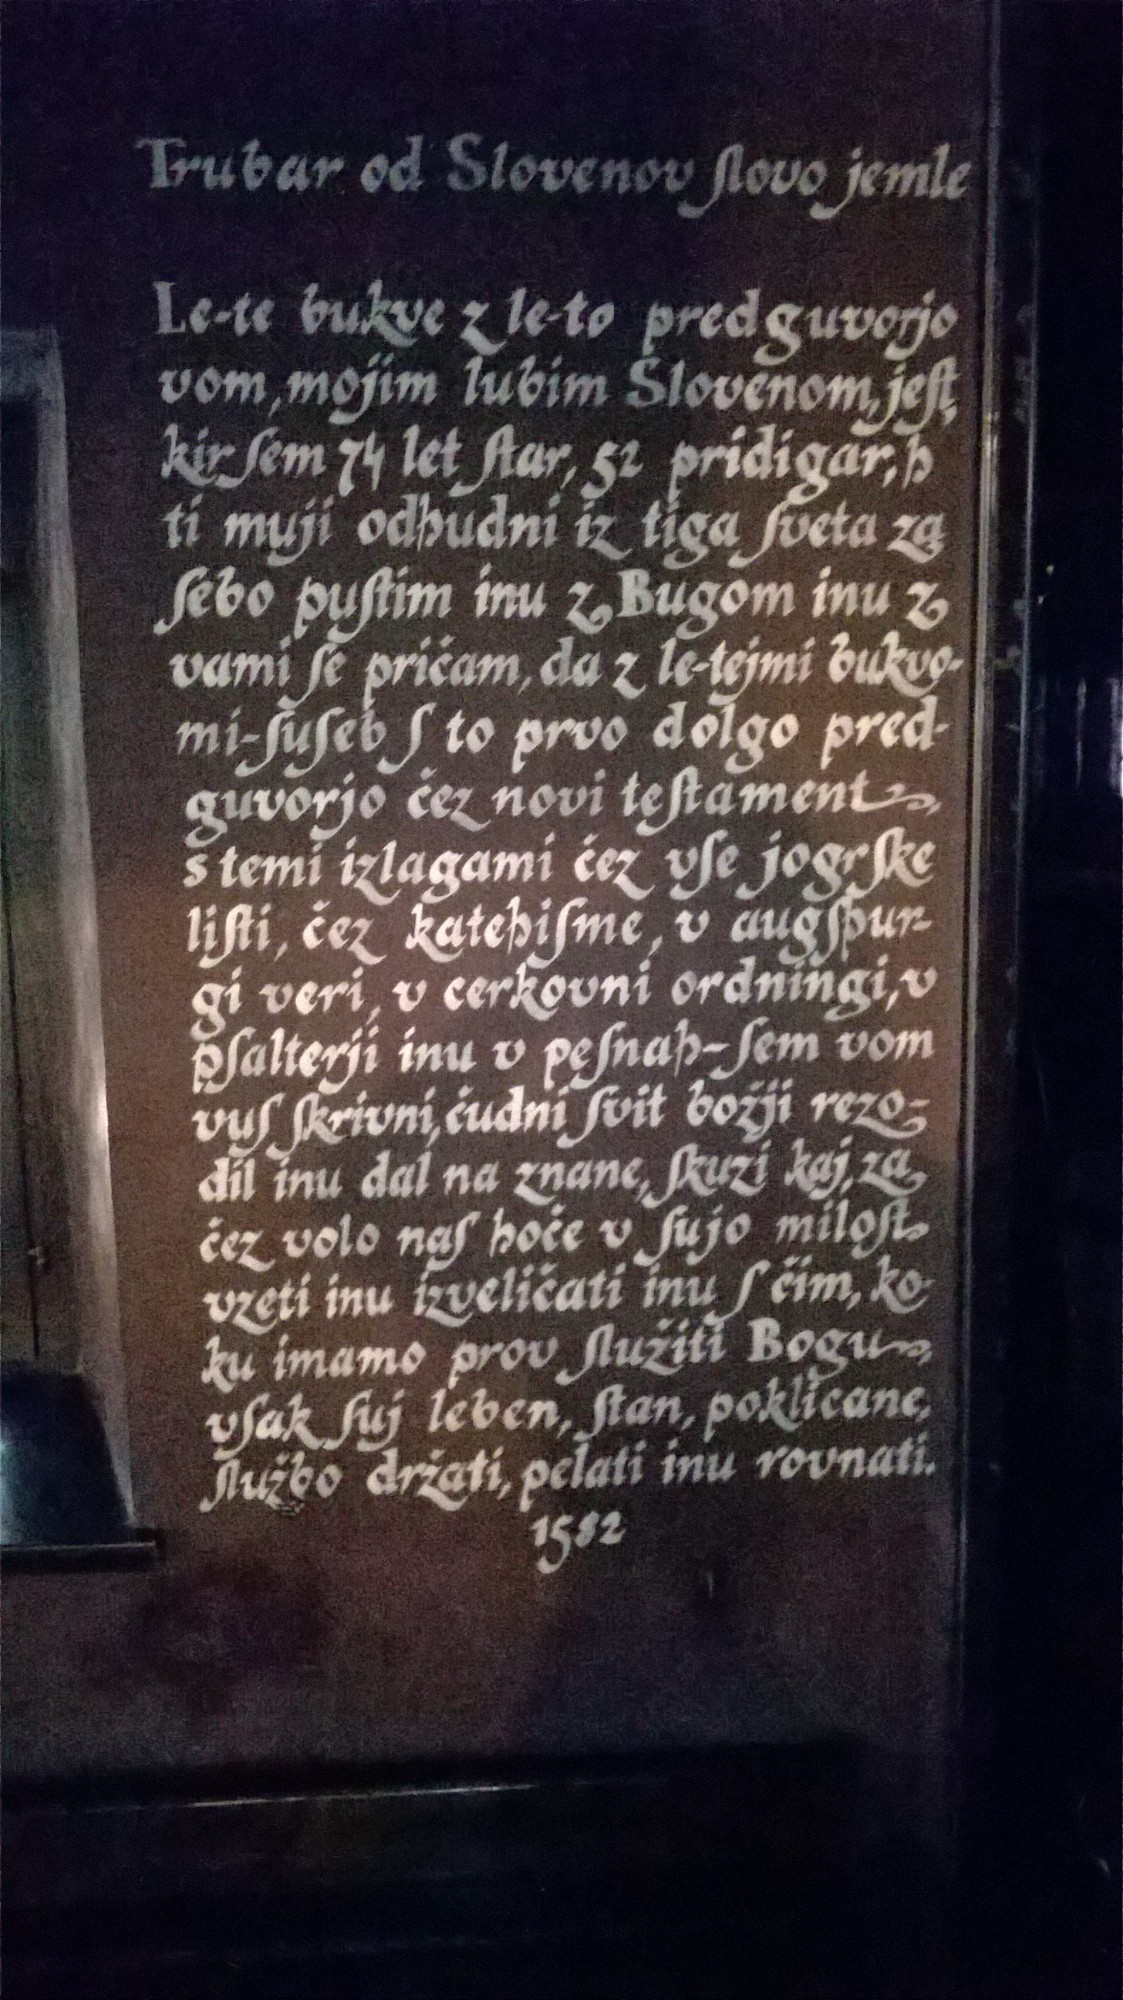 Trubar od Slovenov ſlovo jemle
Le-te bukve z le-to predguvorjo
vom, mojim lubim Slovenom, jeſt,
kir ſem 74 let ſtar, 52 pridigar, h
ti muji odhudni iz tiga ſveta za
ſebo puſtim inu z Bugom inu z
vami ſe pričam, da z le-tejmi bukvo-
mi-ſuſeb ſ to prvo dolgo pred-
guvorjo čez novi teſtament,
s temi izlagami čez vſe jogrſke
liſti, čez katehiſme, v augſpur-
gi veri, v cerkovni ordningi, v
pſalterji inu v peſnah-ſem vom
vuſ ſkrivni, čudni ſvit božji rezo-
dil inu dal na znane, ſkuzi kaj, za
čez volo naſ hoče v ſujo miloſt
vzeti inu izveličati inu ſ čim, ko-
ku imamo prov ſlužiti Bogu,
vſak ſuj leben, ſtan, poklicane,
ſlužbo držati, pelati inu rovnati.
1582